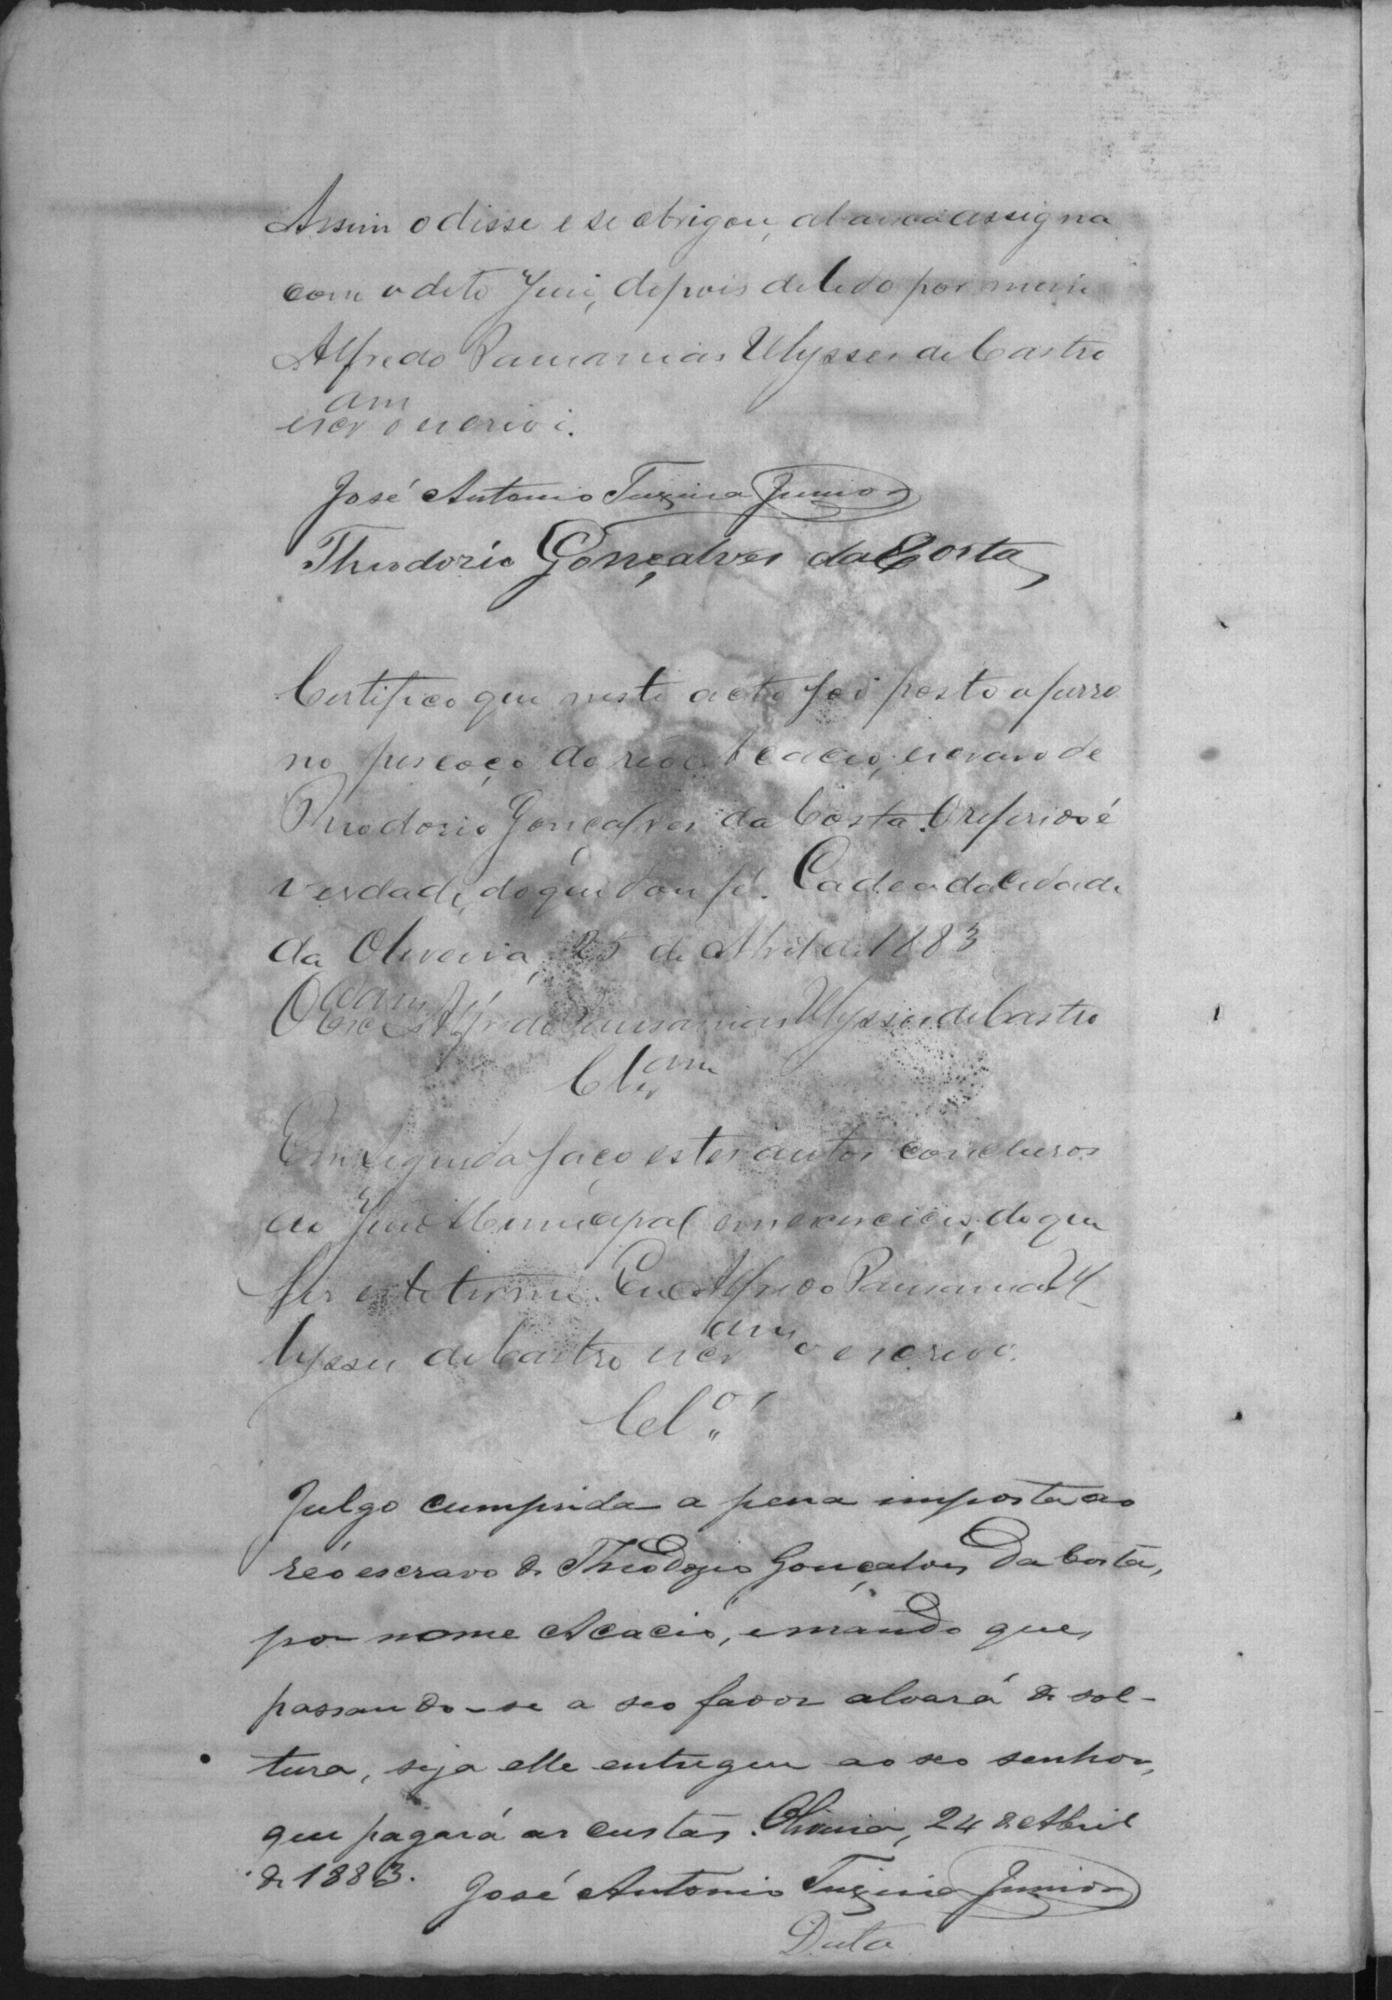 Assim o disse e se obrigou, abaixo assigna
com o dito Juiz, depois de lido por mim
Alfredo Pausanias Ulysses de Castro
escr.am o escrevi.
José Antonio Teixeira Junior
Theodozio Gonçalves da Costa
Certifico que neste acto foi posto o ferro
no pescoço do réo Acacio, escravo de
Theodozio Gonçalves da Costa. O referido é
verdade, do que dou fé. Cadea da Cidade
da Oliveira, 25 de Abril de 1883
O Escr.am Alfredo Pausanias Ulysses de Castro
Cl.am
Em seguida faço estes autos conclusos
ao Juiz Municipal em exercicio, do que
fiz este termo. Eu Alfredo Pausanias Ul-
lysses de Castro escr.am o escrevi.
Cl.os
Julgo cumprida a pena imposta ao
réo escravo de Theodozio Gonçalves da Costa,
por nome Acacio, e mando que,
passando-se a seo favor alvará de sol-
tura, seja elle entregue ao seo senhor,
que pagará as custas. Oliveira, 24 de Abril
de 1883.
José Antonio Teixeira Junior
Data